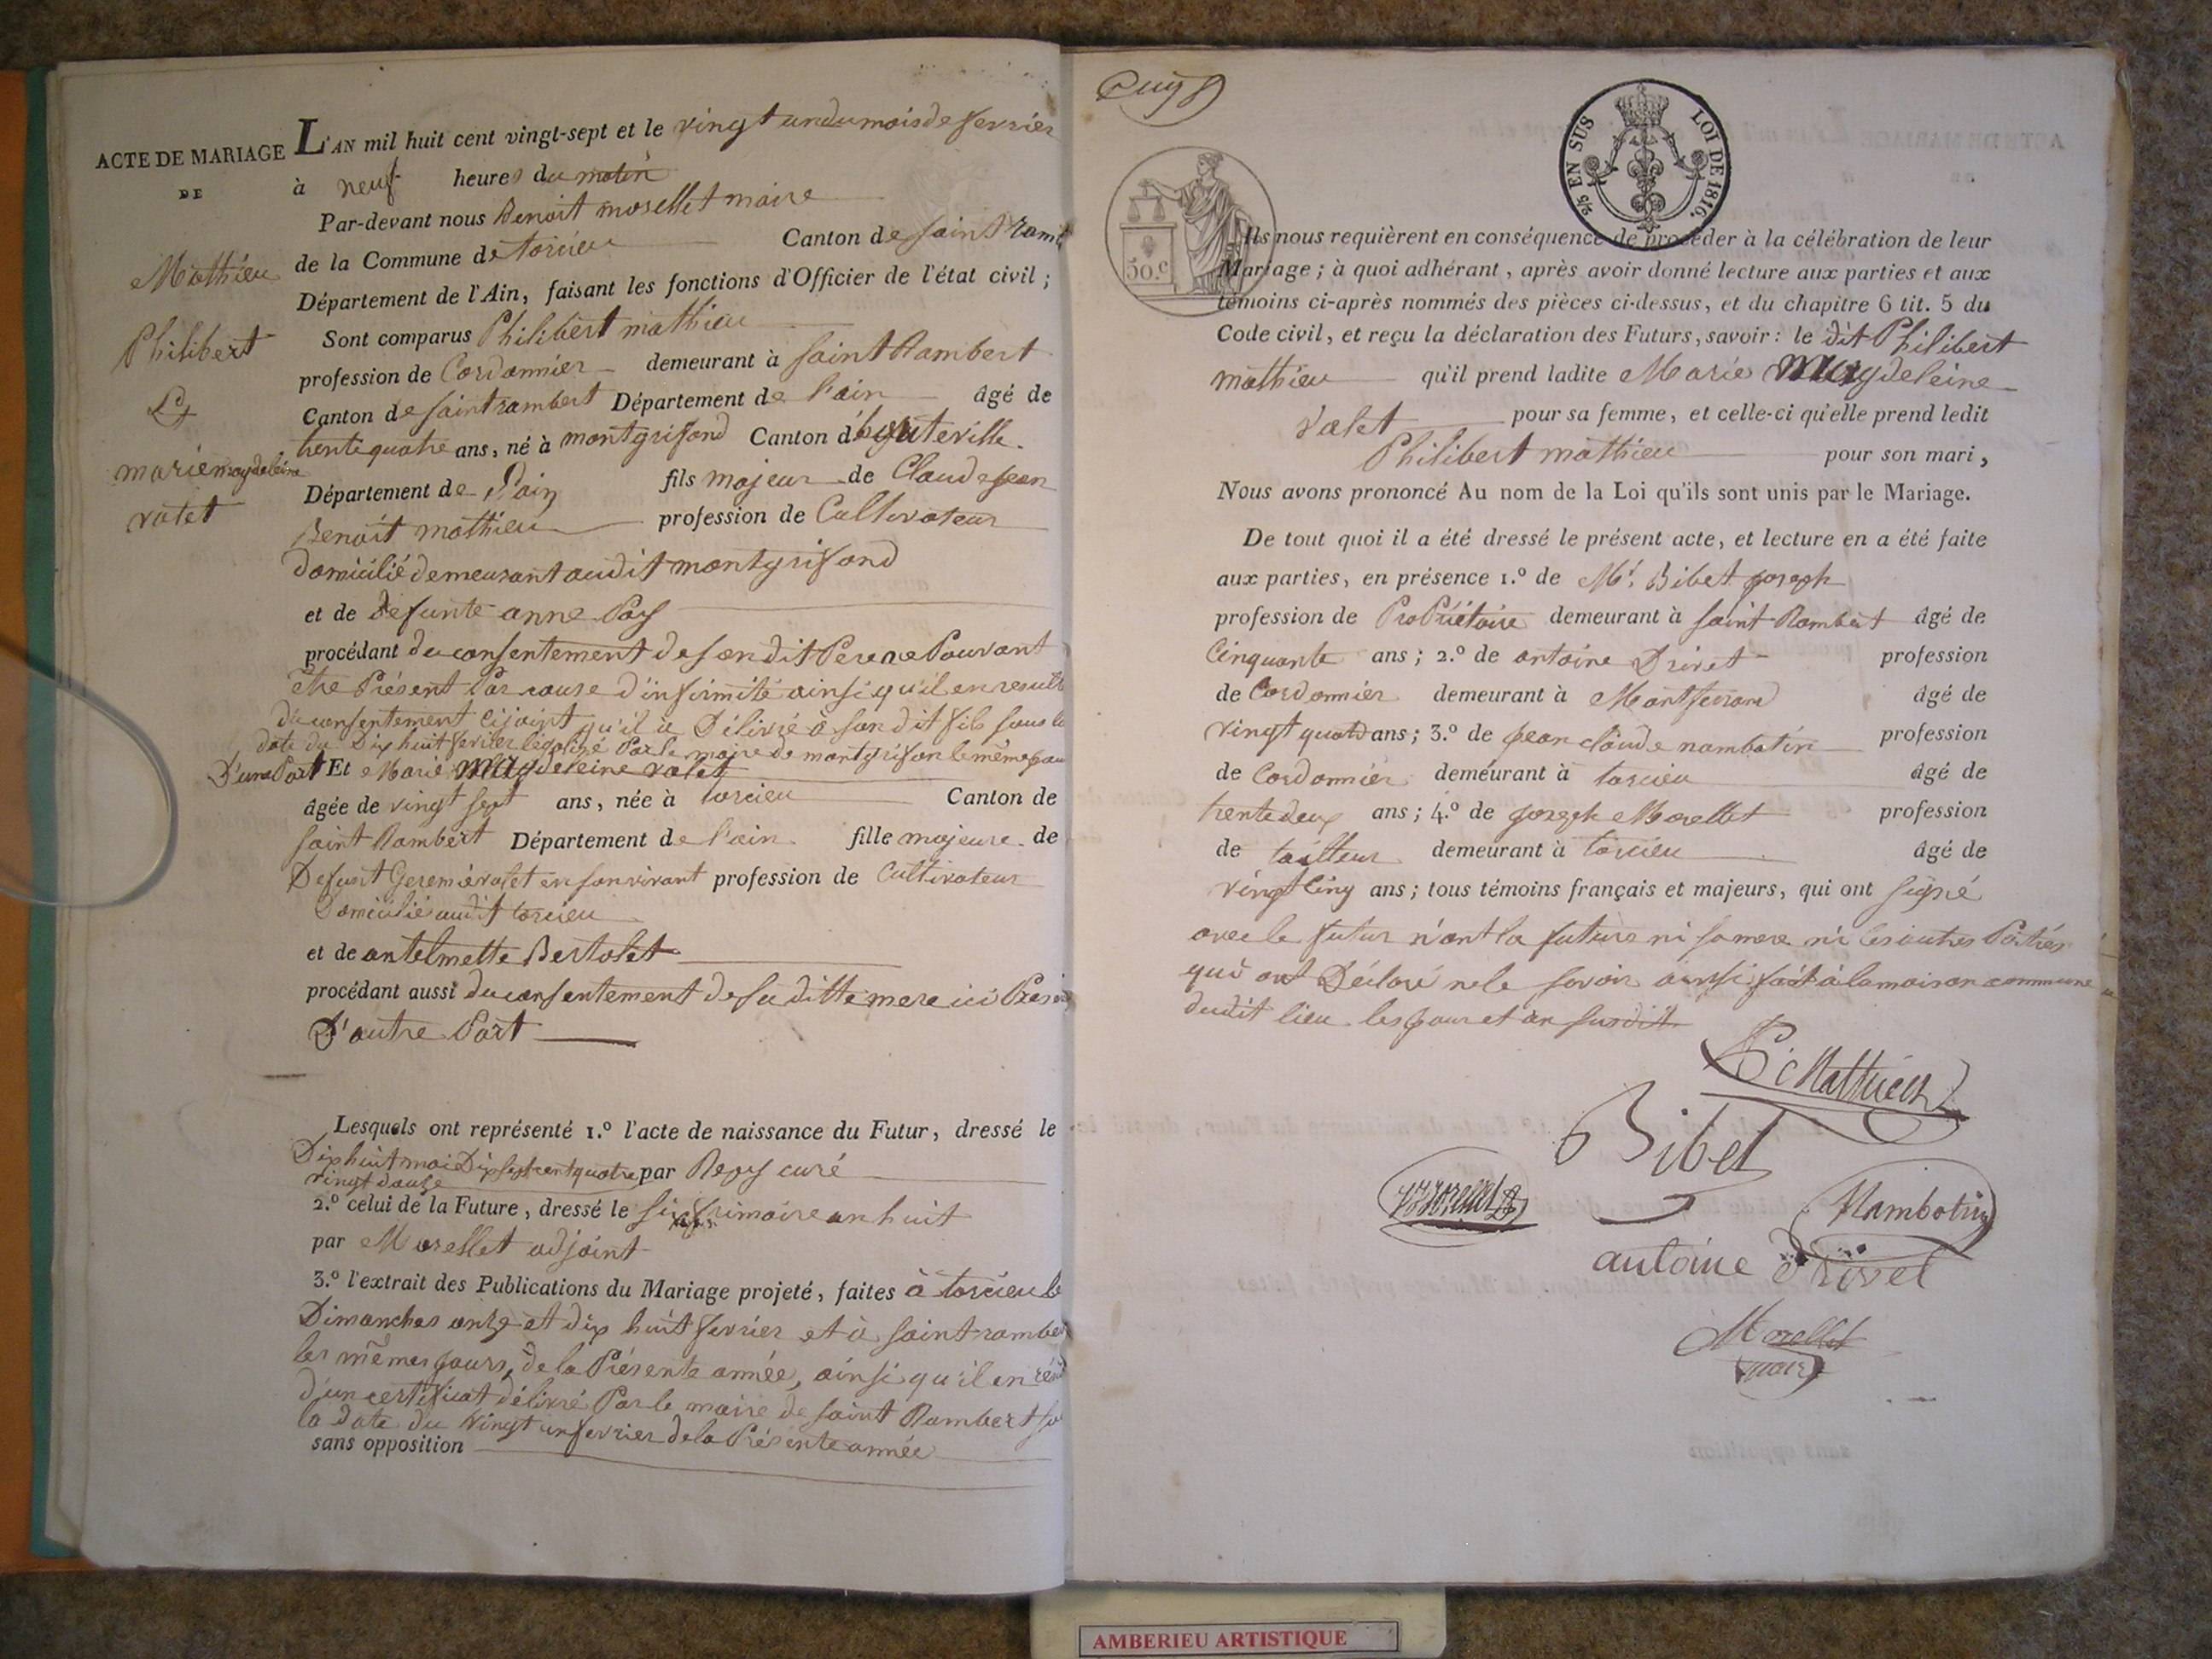 ACTE DE MARIAGE
DE
Mathieu
Philibert
Et
marie magdeleine
valet
L'AN mil huit cent vingt-sept et le vingt un du mois de fevrier
à neuf heures du matin
Par-devant nous Benoit morellet maire
de la Commune de torcieu Canton de saint Ramb
Département de l'Ain, faisant les fonctions d'Officier de l'état civil ;
Sont comparus Philibert mathieu
profession de Cordonnier demeurant à saint Rambert
Canton de saint rambert Département de l'ain âgé de
trente quatre ans, né à montgrifond Canton d'hauteville
Département de l'ain fils majeur de Claude jean
Benoit mathieu profession de Cultivateur
domicilié demeurant audit montgrifond
et de defunte anne Pay
procédant du consentement de son dit Pere ne Pouvant
etre Présent Par cause d'infirmité ainsi qu'il en resulte
du consentement cijoint qu'il a Délivré à son dit fils sous la
date du Dix huit fevrier légalisé Par le maire de montgrifon le même jour
D'une Part Et Marie Magdeleine valet
âgée de vingt sept ans, née à torcieu Canton de
saint Rambert Département de l'ain fille majeure de
Defunt Geremie valet en son vivant profession de Cultivateur
Domicilié audit torcieu
et de antelmette Bertolet
procédant aussi du consentement de sa ditte mere ici Pres
D'autre Part
Lesquels ont représenté 1.º l'acte de naissance du Futur, dressé le
Dix huit mai Dix sept cent quatre par Rey curé
vingt douze
2.º celui de la Future, dressé le six frimaire an huit
par Morellet adjoint
3.º l'extrait des Publications du Mariage projeté, faites à torcieu le
Dimanches onze et dix huit fevrier et à saint rambert
les mêmes jours, de la Présente année, ainsi qu'il en rés
d'un certificat délivré Par le maire de saint Rambert so
la date du vingt un fevrier de la Présente année
sans opposition
2/5 EN SUS LOI DE 1816.
50.c
Ils nous requièrent en conséquence de procéder à la célébration de leur
Mariage ; à quoi adhérant, après avoir donné lecture aux parties et aux
témoins ci-après nommés des pièces ci-dessus, et du chapitre 6 tit. 5 du
Code civil, et reçu la déclaration des Futurs, savoir : le dit Philibert
mathieu qu'il prend ladite Marie Magdeleine
valet pour sa femme, et celle-ci qu'elle prend ledit
Philibert mathieu pour son mari,
Nous avons prononcé Au nom de la Loi qu'ils sont unis par le Mariage.
De tout quoi il a été dressé le présent acte, et lecture en a été faite
aux parties, en présence 1.º de Mr. Bibet joseph
profession de ProPriétaire demeurant à saint Rambert âgé de
Cinquante ans ; 2.º de antoine Drivet profession
de Cordonnier demeurant à Montferrand âgé de
vingt quatre ans ; 3.º de jean claude nambotin profession
de Cordonnier demeurant à torcieu âgé de
trente deux ans ; 4.º de joseph Morellet profession
de tailleur demeurant à torcieu âgé de
vingt cinq ans ; tous témoins français et majeurs, qui ont signé
avec le futur n'ont la future ni sa mere ni les autres Parties
qui ont Déclaré ne le savoir ainsi fait à la maison commune
dudit lieu les jour et an susdit
P. Mathieu
Bibet
Morellet
Nambotin
antoine Drivet
Morellet
maire
AMBERIEU ARTISTIQUE